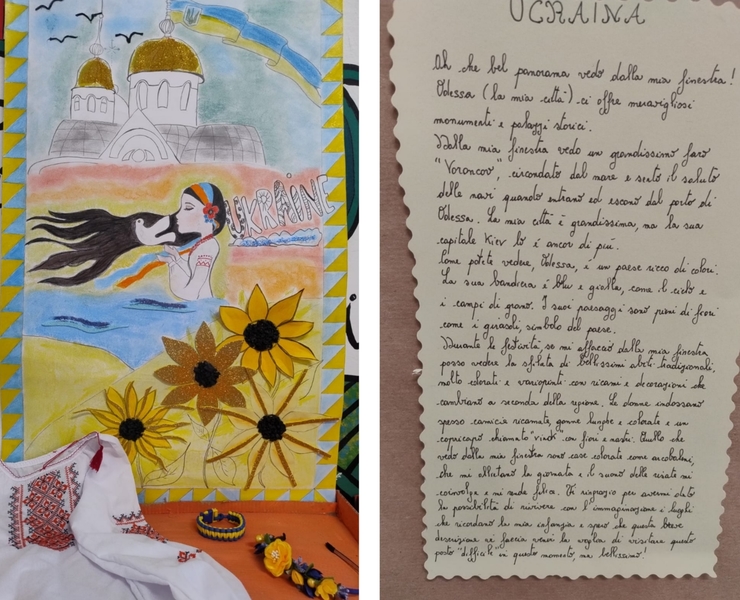 UKRAINE
UCRAINA
Oh che bel panorama vedo dalla mia finestra!
Odessa (la mia città) ci offre meravigliosi
monumenti e palazzi storici.
Dalla mia finestra vedo un grandissimo faro
"Voroncov", circondato dal mare e sento il saluto
delle navi quando entrano ed escono dal porto di
Odessa. La mia città è grandissima, ma la sua
capitale Kiev lo è ancor di più.
Come potete vedere, Odessa, è un paese ricco di colori.
La sua bandiera è blu e gialla, come il cielo e
i campi di grano. I suoi paesaggi sono pieni di fiori
come i girasoli, simbolo del paese.
Durante le festività, se mi affaccio dalla mia finestra
posso vedere la sfilata di bellissimi abiti tradizionali,
molto colorati e variopinti con ricami e decorazioni che
cambiano a seconda della regione. Le donne indossano
spesso camicie ricamate, gonne lunghe e colorate e un
copricapo chiamato "vinok" con fiori e nastri. Quello che
vedo dalla mia finestra sono case colorate come arcobaleni,
che mi allietano la giornata e il suono delle risate mi
coinvolge e mi rende felice. Vi ringrazio per avermi dato
la possibilità di rivivere con l'immaginazione i luoghi
che ricordano la mia infanzia e spero che questa breve
descrizione vi faccia venir la voglia di visitare questo
posto "difficile" in questo momento, ma bellissimo!